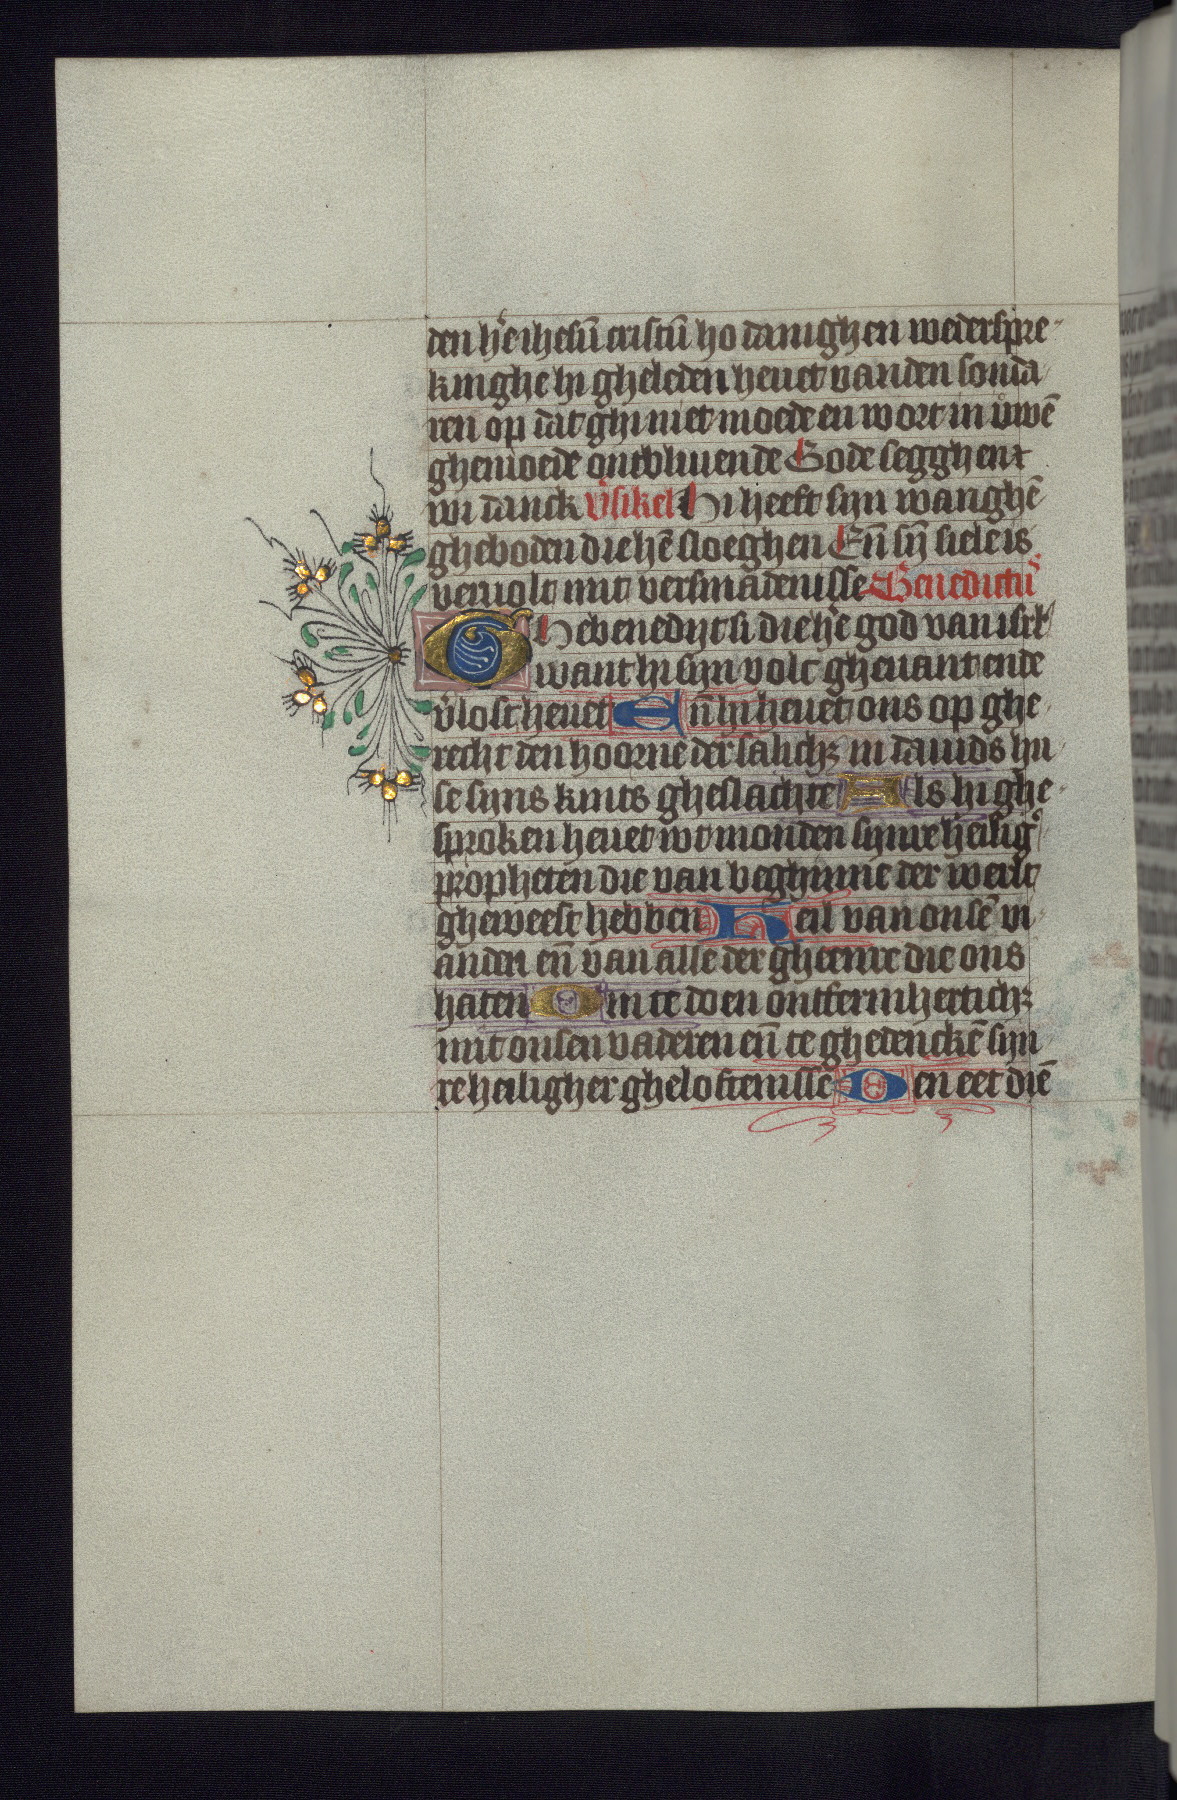 den hr̄e ihesū cristū ho danighen wederspre-
kinghe hi gheleden heuet vanden sonda
ren op dat ghi niet moede en wort in uwē
ghemoede ontbliuende Gode segghen
wi danck v̄sikel Hi heeft sijn wanghē
gheboden die hē sloeghen En̄ sij̄ siele is
veruolt mit versmadenisse Benedictus
Ghebenedijt si die hr̄e god van isrl̄
want hi sijn volc gheuant ende
v̄lost heuet En̄ hi heuet ons op ghe
recht den hoorne der salichz in dauids hu
se sijns kints gheslachte Als hi ghe-
sproken heuet wt monden sijnre heiliḡ
propheten die van beghinne der werlt
gheweest hebben Heil van onsē vi-
anden en̄ van alle der gheenre die ons
haten Om te doen ontfermhertichz
mit onsen vaderen en̄ te ghedenckē sijn
re heiligher gheloftenisse Den eet diē